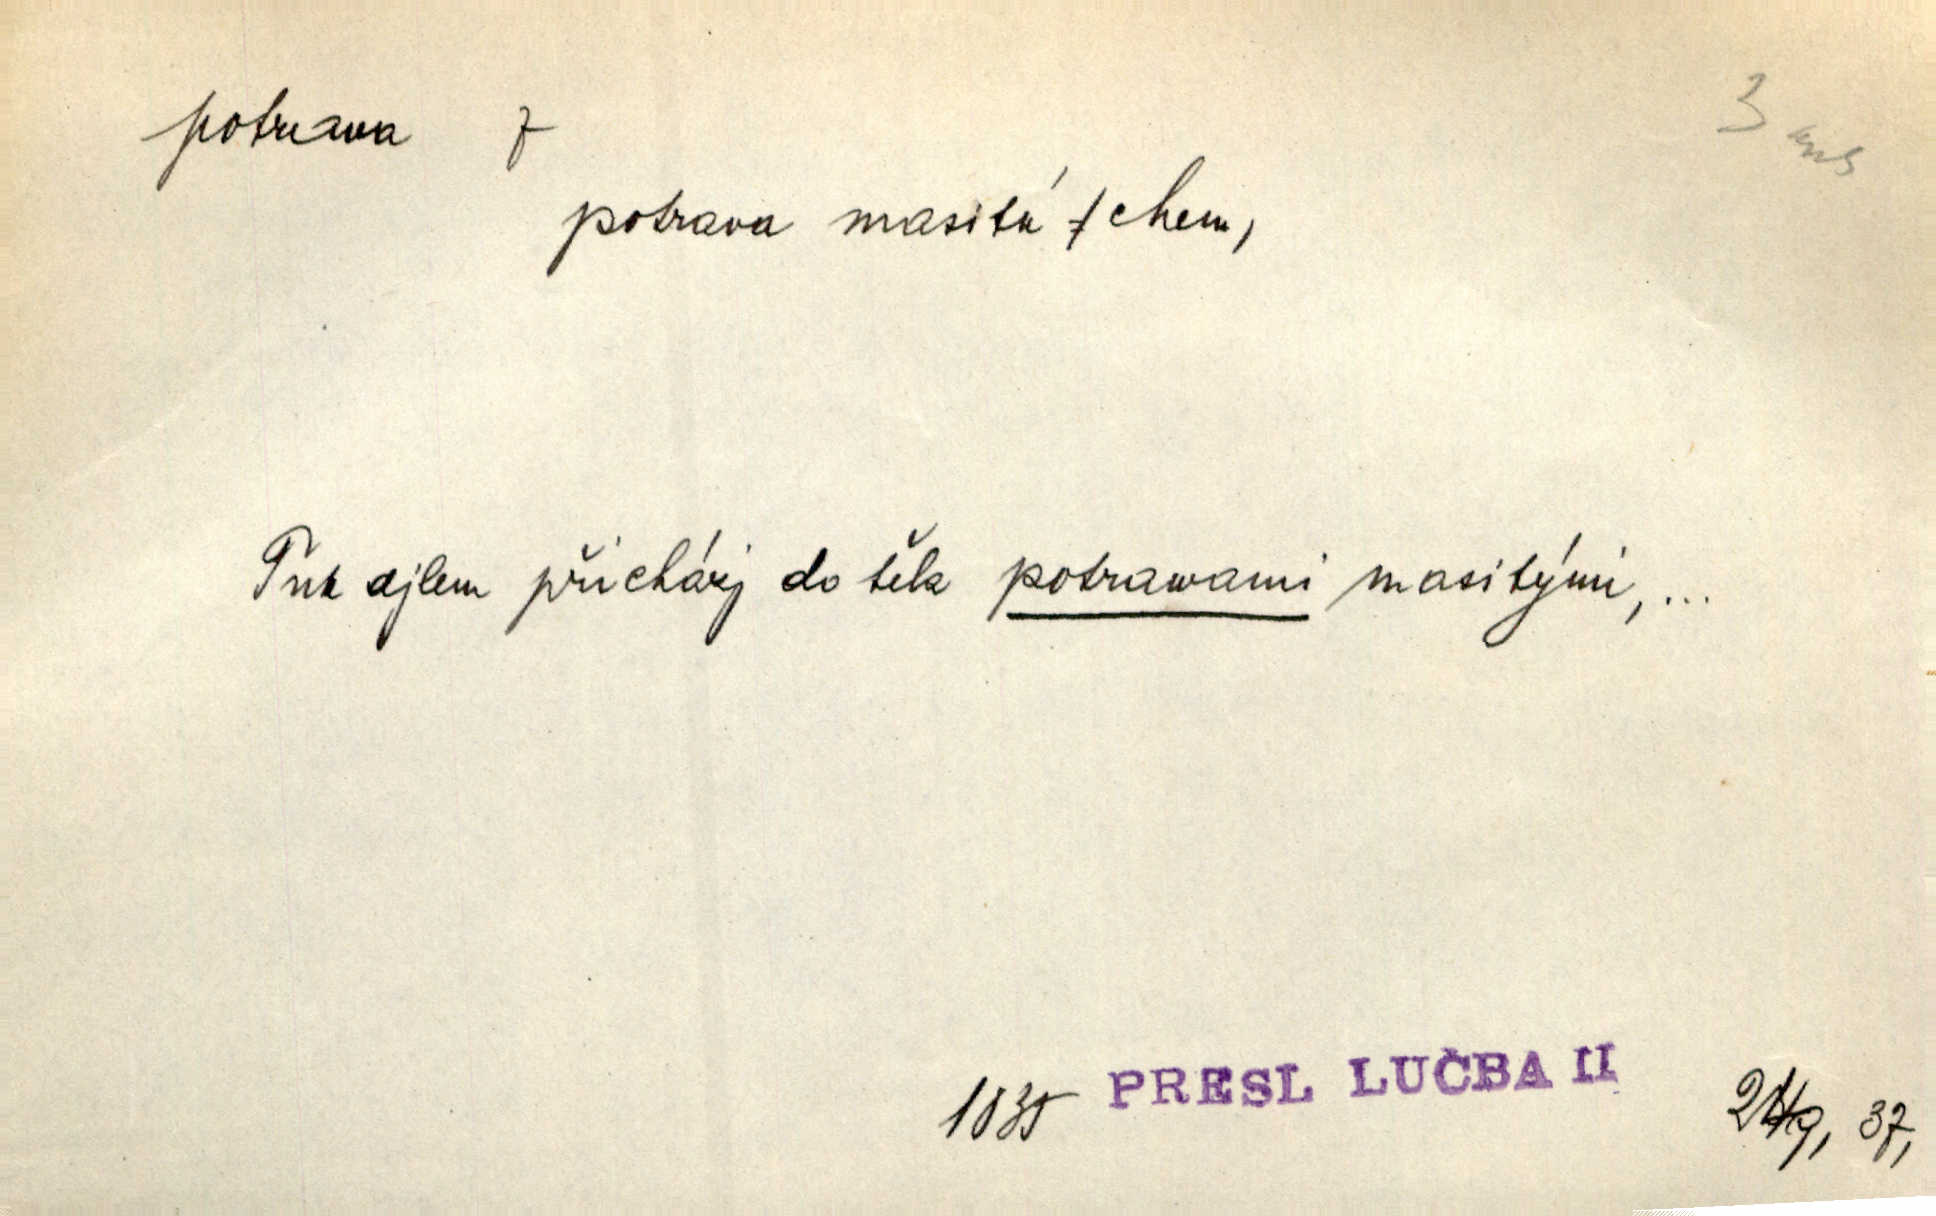 potrava f
3
potrava masitá f chem,
Tuk djlem přicházj do těla potrawami masitými, ...
1835 PRESL LUČBA II 249, 37,